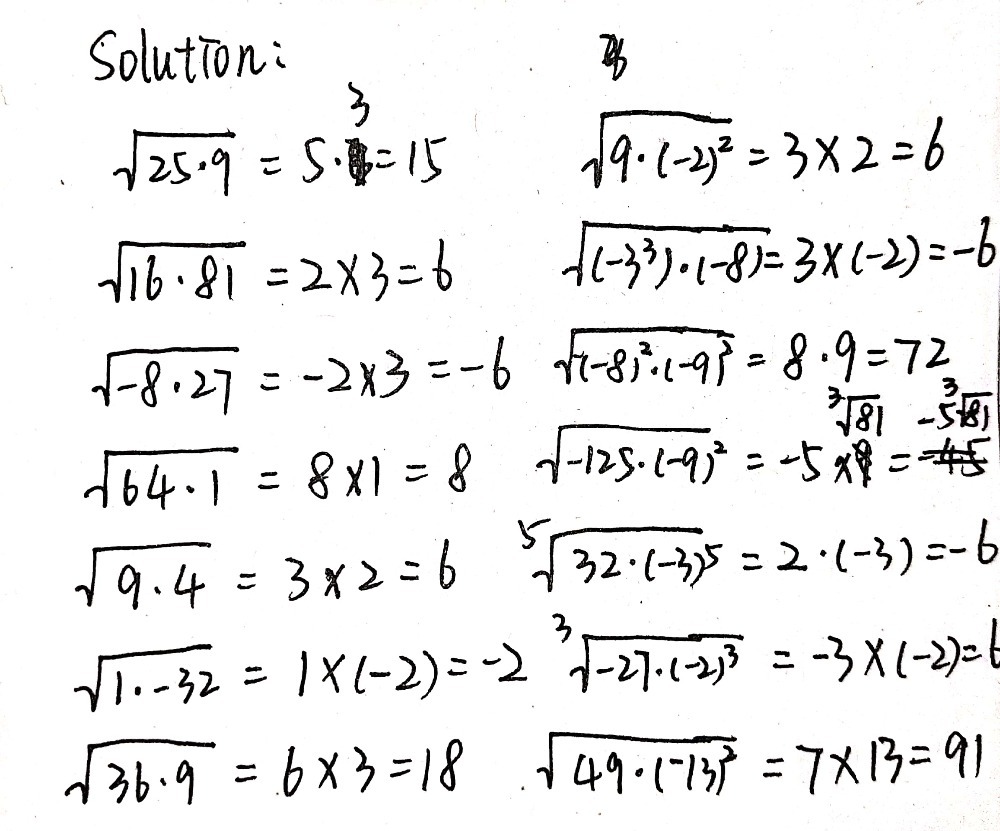 Solution:
√25·9 = 5·3 = 15
√9·(-2)² = 3×2 = 6
√16·81 = 2×3 = 6
√(-3³)·(-8) = 3×(-2) = -6
√-8·27 = -2×3 = -6
√(-8)²·(-9)² = 8·9 = 72
³√81 -5³√81
√64·1 = 8×1 = 8
√-125·(-9)² = -5×9 = -45
√9·4 = 3×2 = 6
⁵√32·(-3)⁵ = 2·(-3) = -6
√1·-32 = 1×(-2) = -2
³√-27·(-2)³ = -3×(-2) = 6
√36·9 = 6×3 = 18
√49·(-13)² = 7×13 = 91